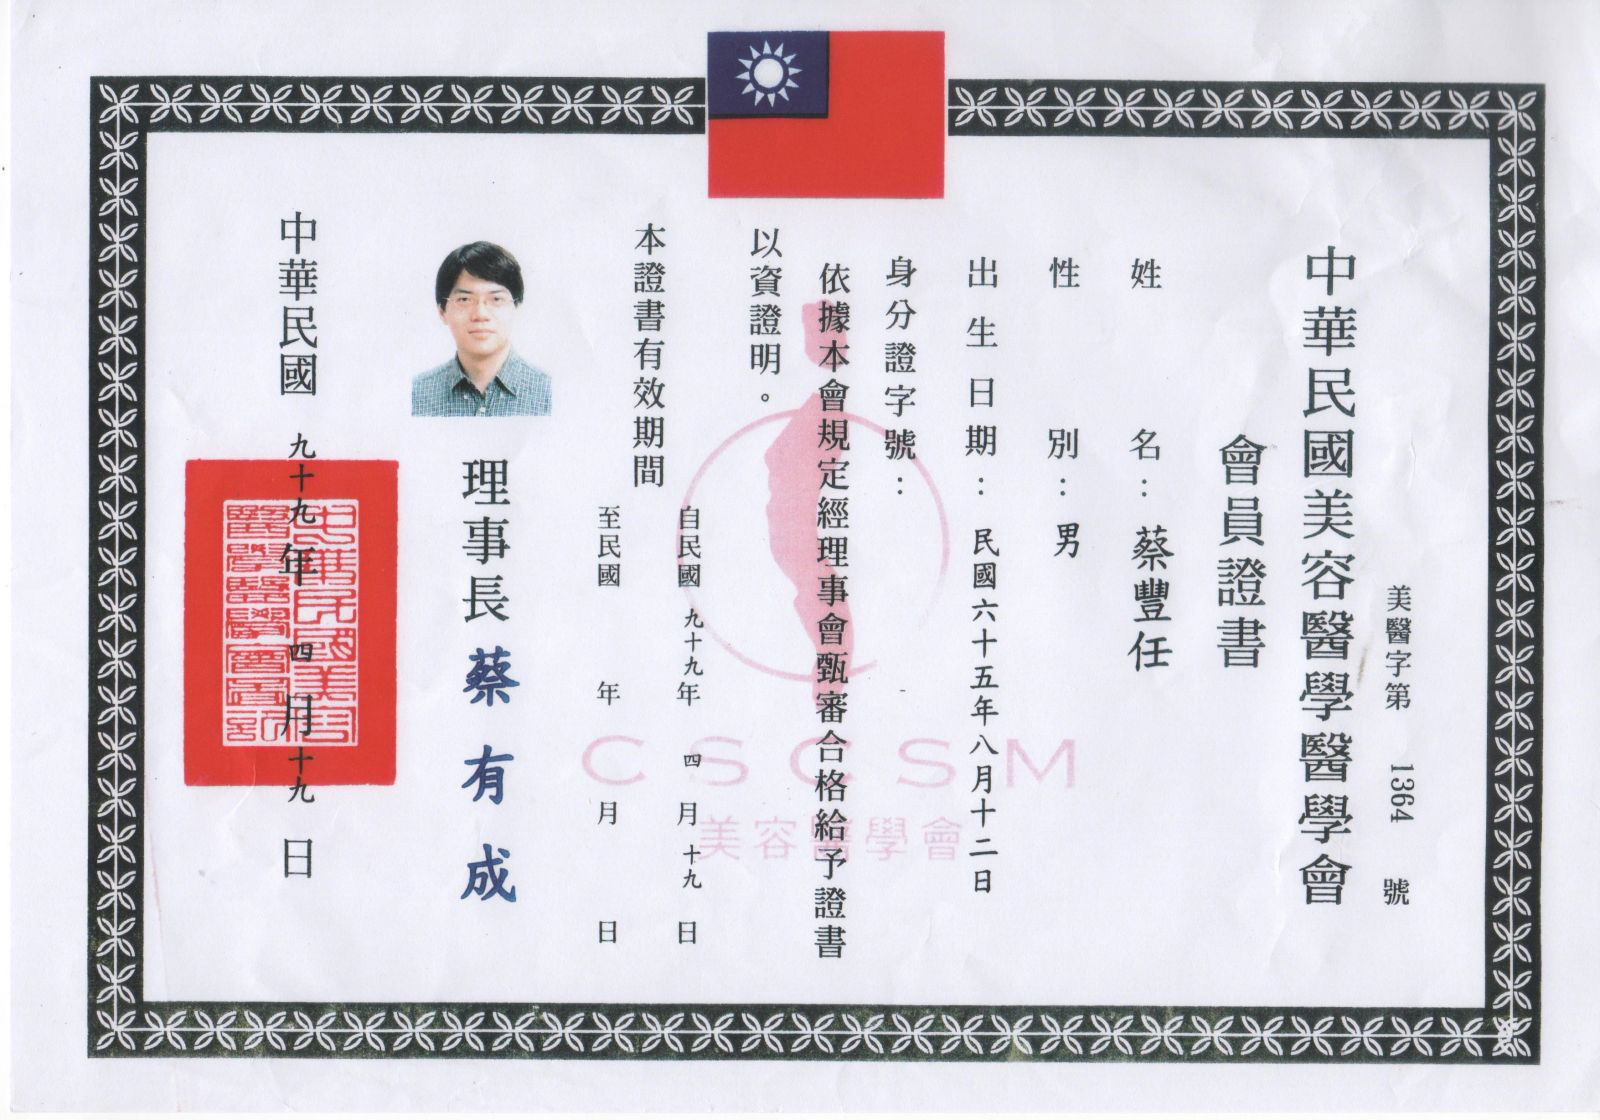 美醫字第 1364 號
中華民國美容醫學醫學會
會員證書
姓名：蔡豐任
性別：男
出生日期：民國六十五年八月十二日
身分證字號：
依據本會規定經理事會甄審合格給予證書
以資證明。
本證書有效期間
自民國九十九年四月十九日
至民國 年 月 日
理事長 蔡有成
中華民國九十九年四月十九日
CSCSM
美容醫學會